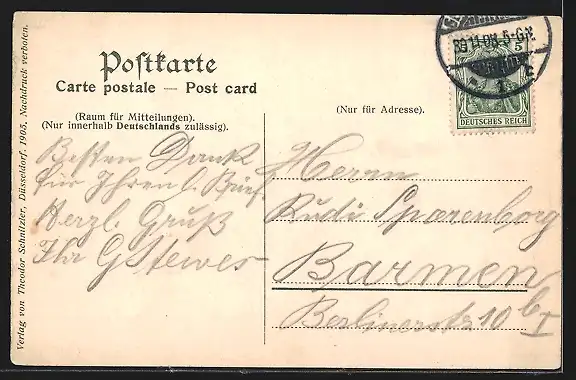 Postkarte
Carte postale — Post card
(Raum für Mitteilungen).
(Nur innerhalb Deutschlands zulässig).
(Nur für Adresse).
Besten Dank
für Ihren l. Brief.
Herzl. Gruß
Ihr
Herrn
Rudi Sparenborg
Barmen
Berlinerstr 10 b
I
5
DEUTSCHES REICH
5-6N
Verlag von Theodor Schnitzler, Düsseldorf. 1905. Nachdruck verboten.